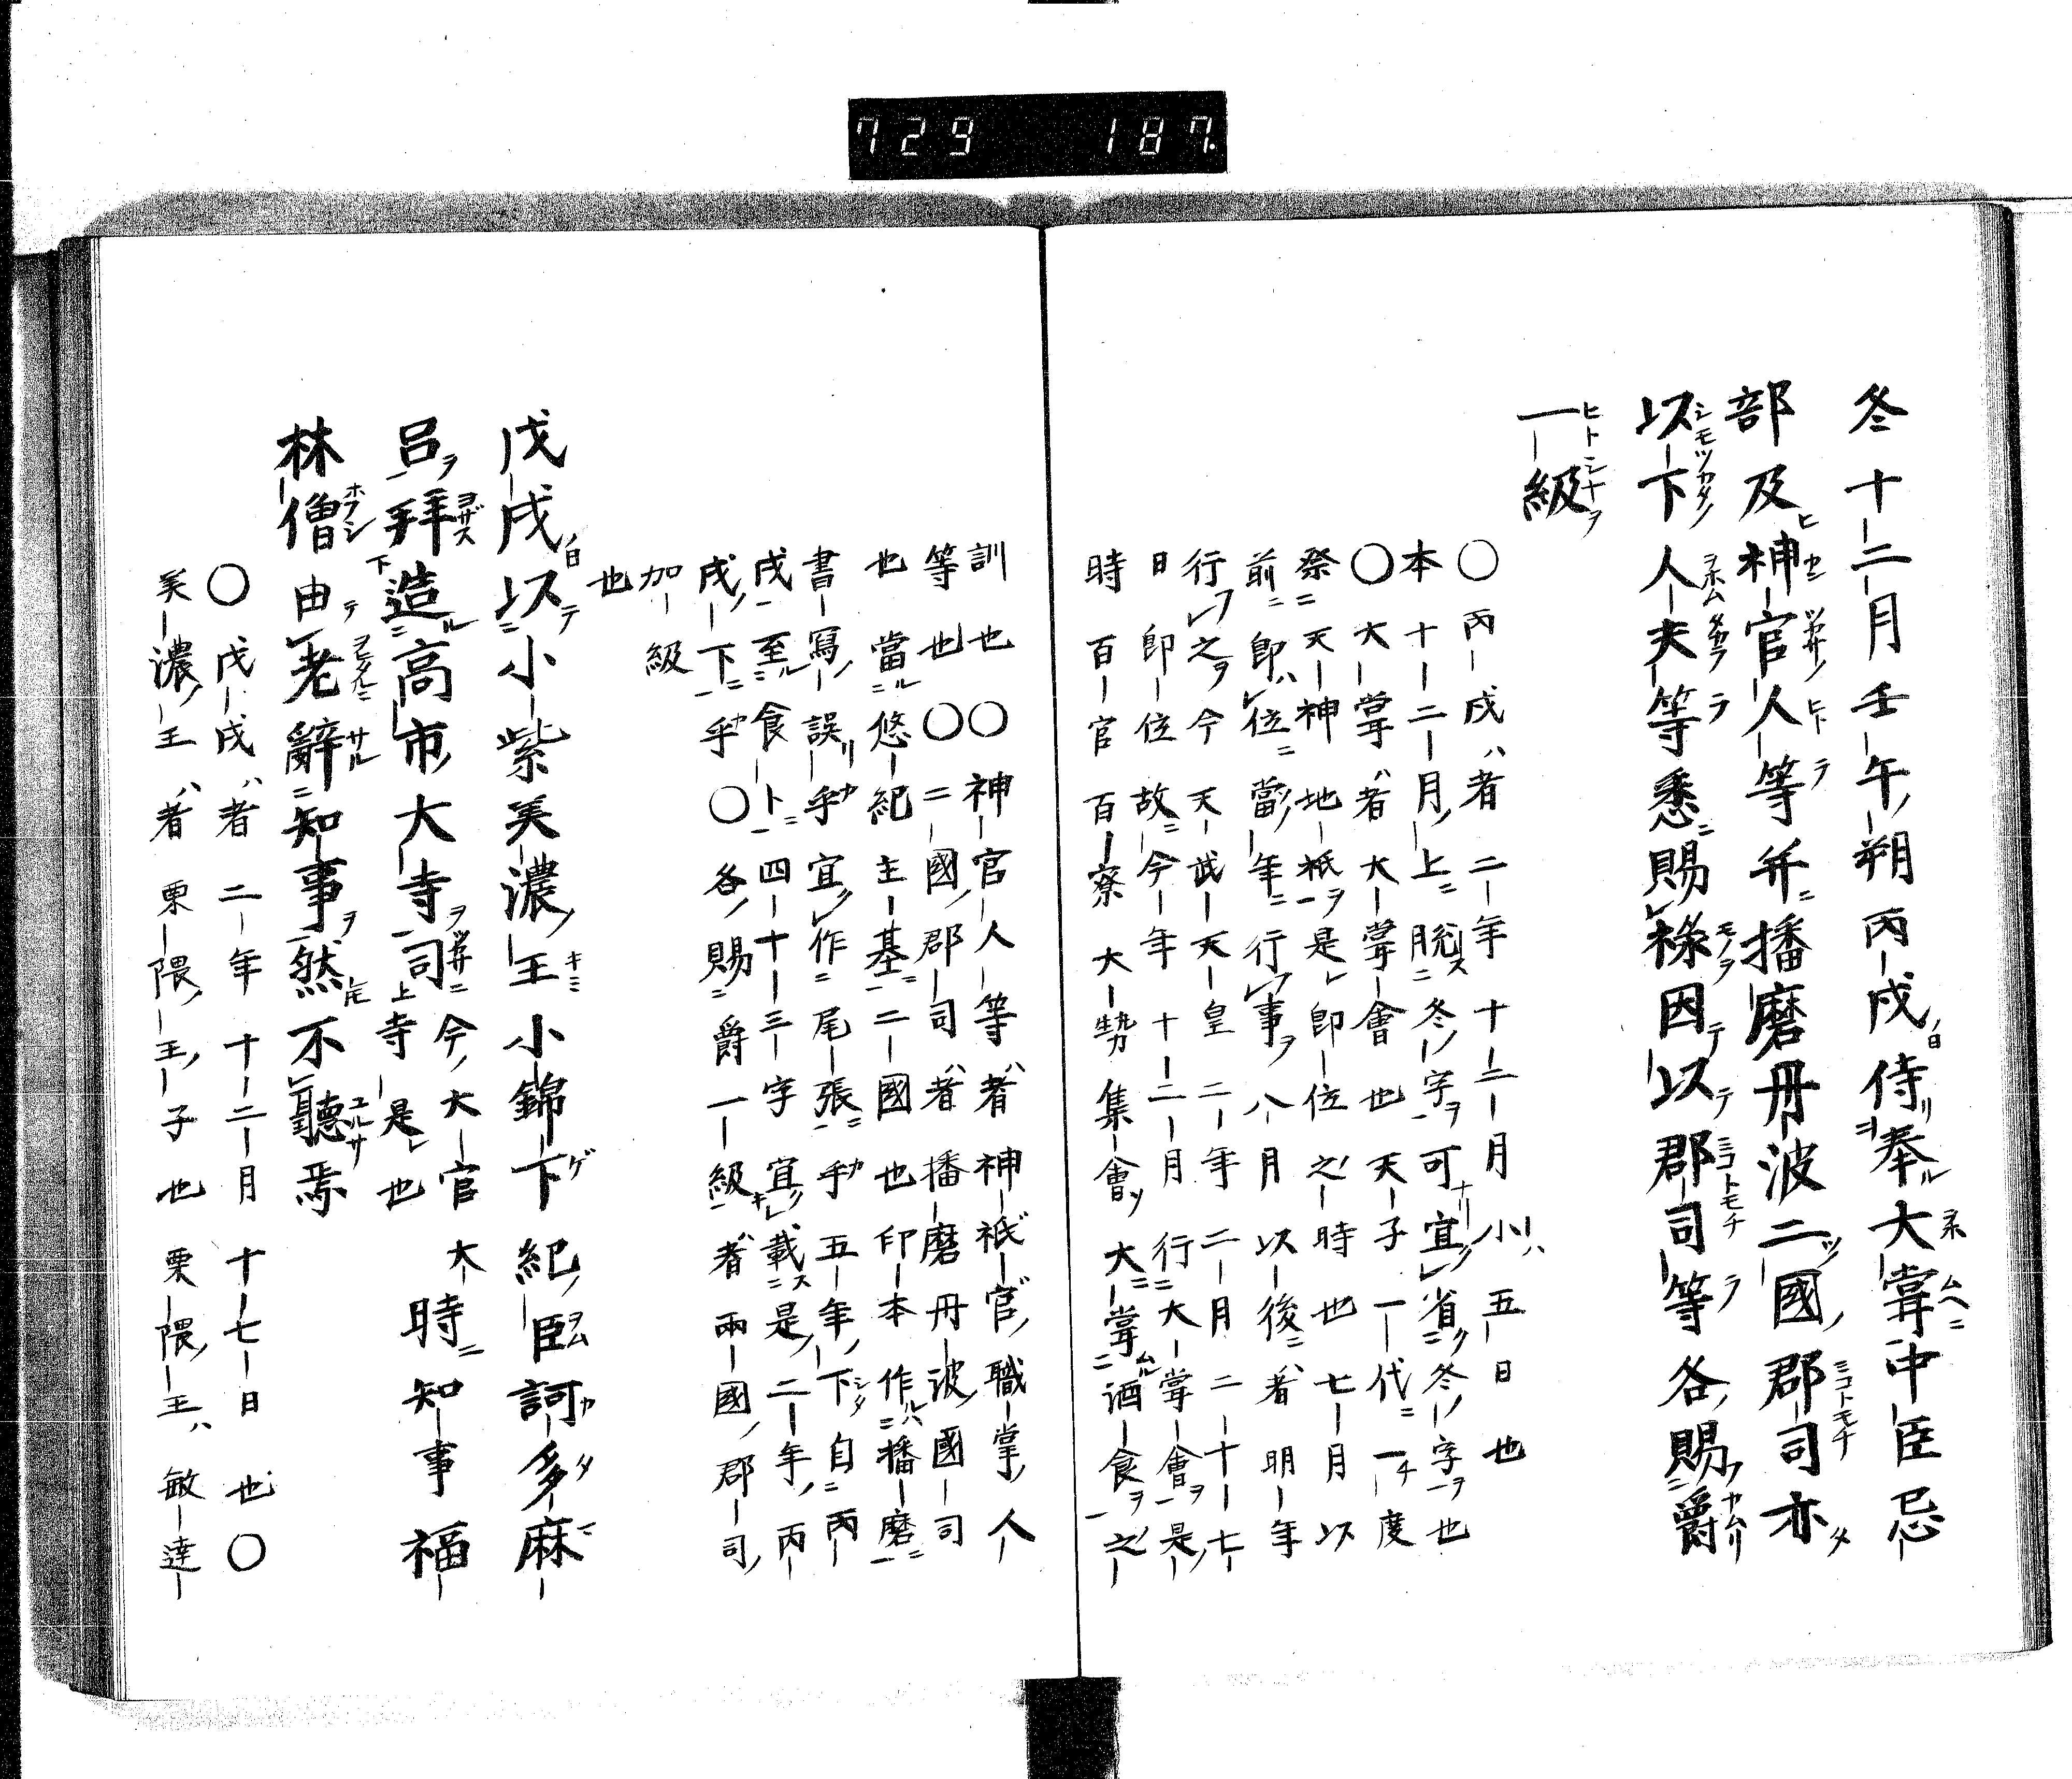 729 187.
冬十二月壬午朔丙戌侍奉大嘗中臣忌
部及神官人等并播磨丹波二國郡司亦
以下人夫等悉賜祿因以郡司等各賜爵
一級
○丙戌者二年十二月小五日也
本十二月上脫冬字可宜省冬字也
○大嘗者大嘗會也天子一代一度
祭天神地祇是即位之時也七月以
前即位當年行事八月以後者明年
行之今天武天皇二年二月二十七
日即位故今年十二月行大嘗會是
時百官百寮大勢集會大嘗酒食之
訓也○神官人等者神祇官職掌人
等也○二國郡司者播磨丹波國司
也當悠紀主基二國也印本作播磨
書寫誤乎宜作尾張乎五年下自丙
戌至食卜四十三字宜載是二年丙
戌下乎○各賜爵一級者兩國郡司
加級
也
戊戌以小紫美濃王小錦下紀臣訶多麻
呂拜造高市大寺司今大官大寺是也時知事福
林僧由老辭知事然不聽焉
○戊戌者二年十二月十七日也○
美濃王者栗隈王子也栗隈王敏達